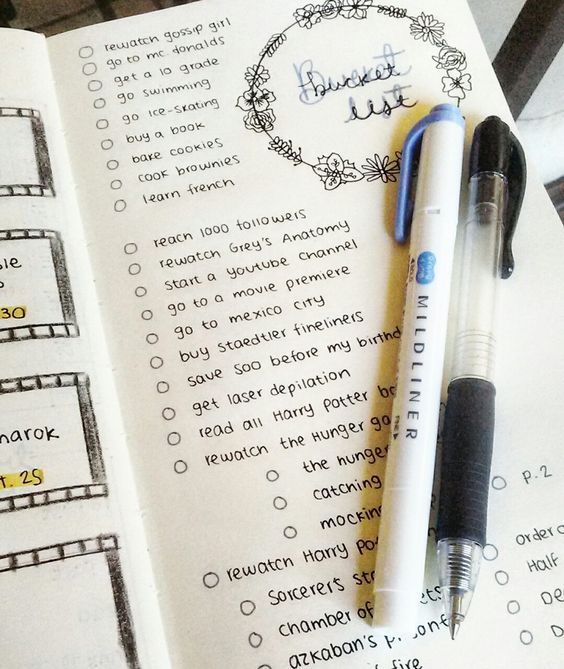 rewatch gossip girl
go to mc donalds
get a 10 grade
go swimming
go ice-skating
buy a book
bake cookies
cook brownies
learn french
Bucket
bucket
list
reach 1000 followers
rewatch Grey's Anatomy
start a youtube channel
go to a movie premiere
go to mexico city
buy staedtler fineliners
save 500 before my
get laser depilation
read all Harry Potter
rewatch the Hunger
the
catching
rewatch Harry
Sorcerer's
chamber of
azkaban's
fire
P.2
order
Half
30
narok
t. 25
MILDLINER